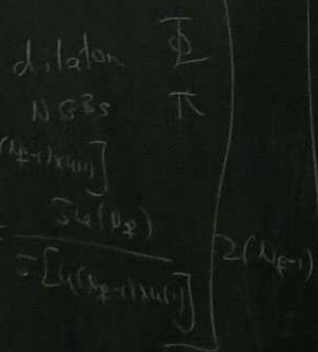 dilaton Φ
NGBs π
(N_f-1)×U(1)]
SU(N_f)
S[U(N_f-1)×U(1)]
2(N_f-1)